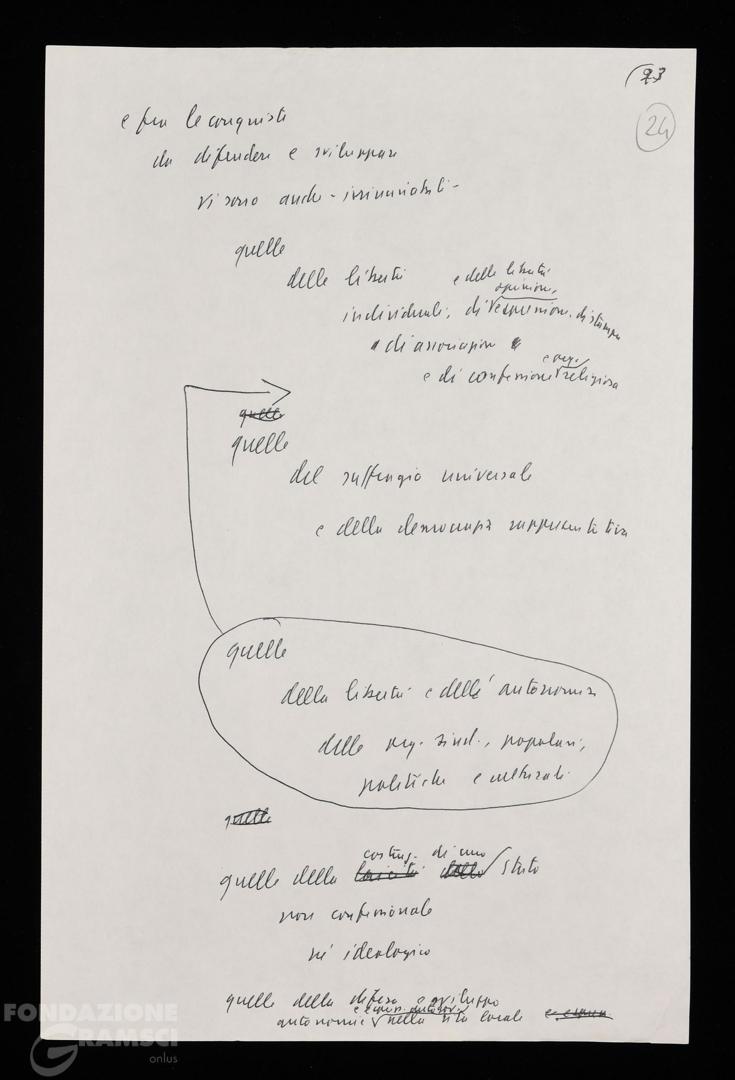 23
24
e fra le conquiste
da difendere e sviluppare
vi sono anche - irrinunciabili -
quelle
delle libertà e delle libertà
opinione,
individuali, di espressione, di stampa
di associazione
e org.
e di confessione religiosa
quelle
quelle
del suffragio universale
e della democrazia rappresentativa
quelle
della libertà e dell' autonomia
delle org. sind., popolari,
politiche e culturali
quelle
costruz. di uno
quelle della laicità dello Stato
non confessionale
né ideologico
quelle della difesa e sviluppo
autonomie nella vita locale
FONDAZIONE
GRAMSCI
onlus